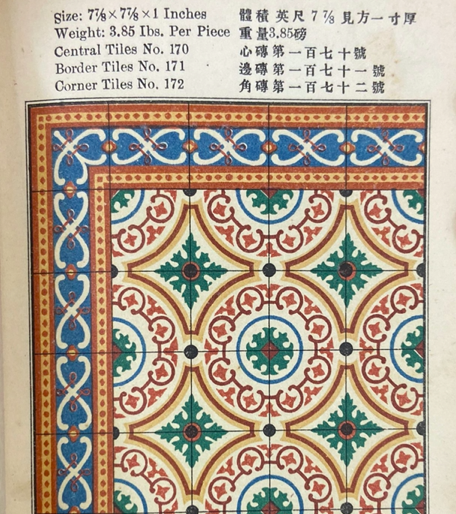 Size: 7⅞×7⅞×1 Inches 體積英尺7⅞見方一寸厚
Weight: 3.85 Ibs. Per Piece 重量3.85磅
Central Tiles No. 170 心磚第一百七十號
Border Tiles No. 171 邊磚第一百七十一號
Corner Tiles No. 172 角磚第一百七十二號